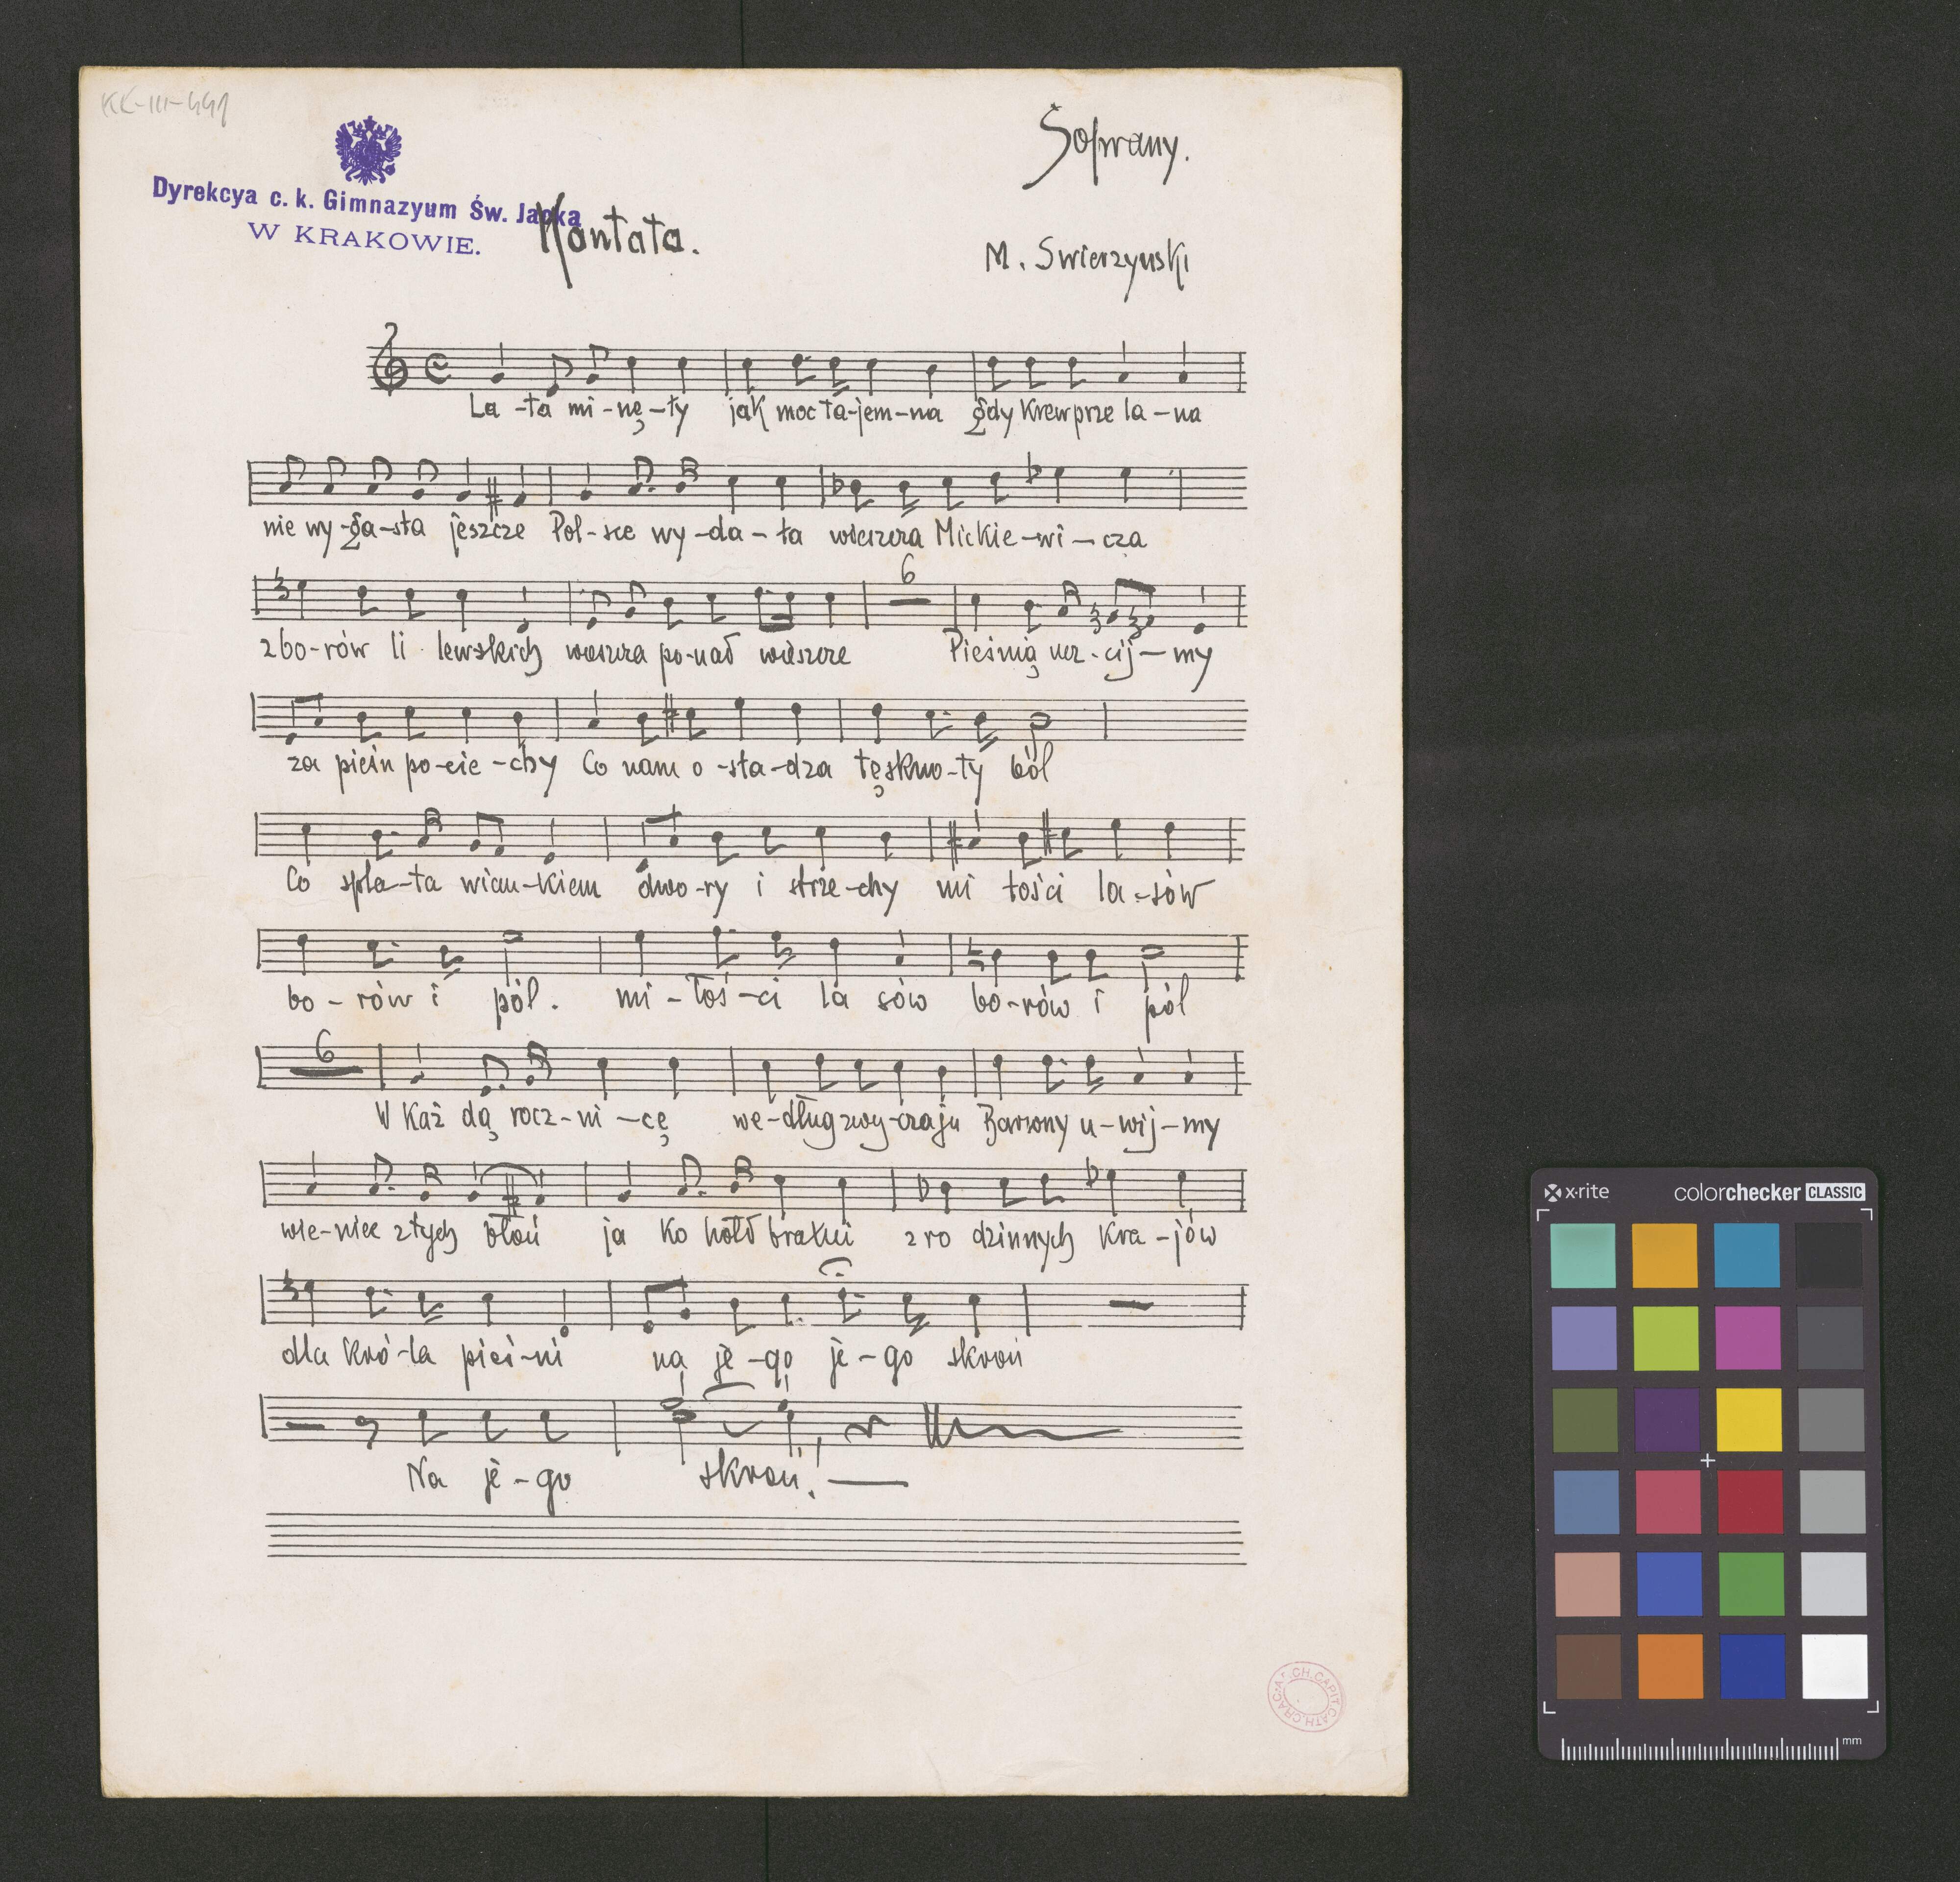 KK-III-441
Soprany.
Dyrekcya c. k. Gimnazyum Św. Jacka
W KRAKOWIE.
Kantata.
M. Swierzyński
La-ta mi-nę-ły jak moc ta-jem-na gdy krew prze la-na
nie wy-ga-sła jeszcze Pol-sce wy-da-ła wieszcza Mickie-wi-cza
6
z bo-rów li lewskich wieszcza po-nad wieszcze Pieśnią ucz-cij-my
za pieśń po-cie-chy Co nam o-sła-dza tęskno-ty ból
Co spla-ta wian-kiem dwo-ry i strze-chy mi łości la-sów
bo-rów i pól. mi-łoś-ci la sów bo-rów i pól
6
W każ dą rocz-ni-cę we-dług zwy-czaju Barwny u-wij-my
wie-niec z tych błoń ja ko hołd bratni z ro dzinnych kra-jów
dla kró-la pieś-ni na je-go je-go skroń
Na je-go skroń!
ARCH.CARIT.CATH.CRAC.
x-rite
colorchecker CLASSIC
mm